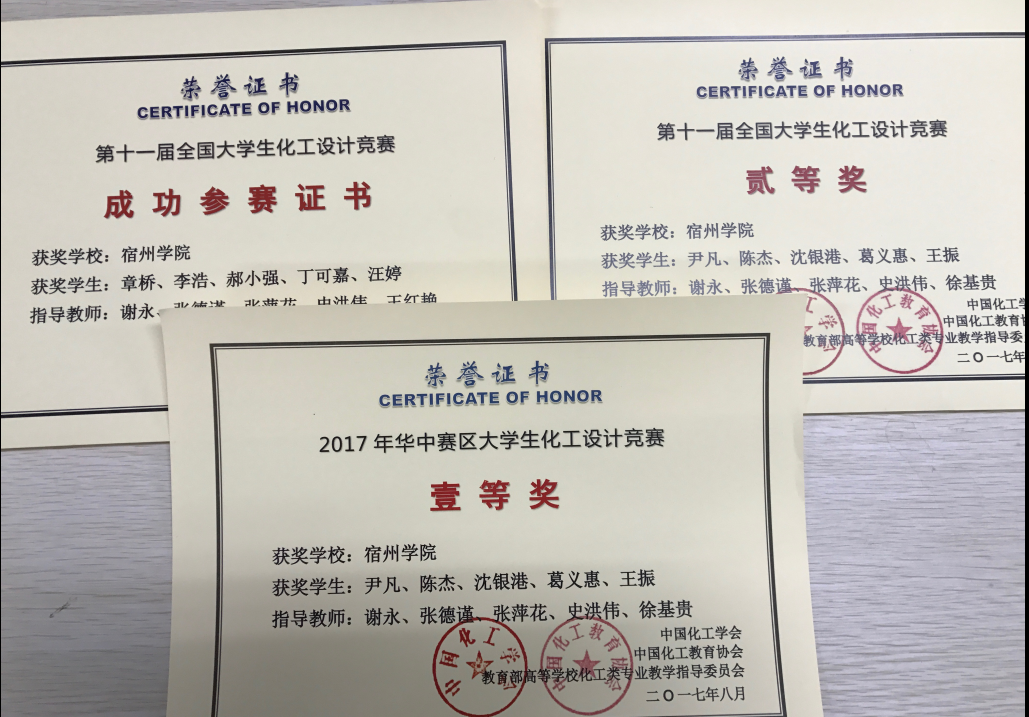 荣誉证书
CERTIFICATE OF HONOR
第十一届全国大学生化工设计竞赛
成功参赛证书
获奖学校：宿州学院
获奖学生：章桥、李浩、郝小强、丁可嘉、汪婷
指导教师：谢永、张德谨、张萍花、史洪伟、王红艳
荣誉证书
CERTIFICATE OF HONOR
第十一届全国大学生化工设计竞赛
贰等奖
获奖学校：宿州学院
获奖学生：尹凡、陈杰、沈银港、葛义惠、王振
指导教师：谢永、张德谨、张萍花、史洪伟、徐基贵
中国化工学
中国化工教育协
教育部高等学校化工类专业教学指导委
二〇一七年
工学会
中国化工教育协会
荣誉证书
CERTIFICATE OF HONOR
2017年华中赛区大学生化工设计竞赛
壹等奖
获奖学校：宿州学院
获奖学生：尹凡、陈杰、沈银港、葛义惠、王振
指导教师：谢永、张德谨、张萍花、史洪伟、徐基贵
中国化工学会
中国化工教育协会
教育部高等学校化工类专业教学指导委员会
二〇一七年八月
中国化工学会
中国化工教育协会